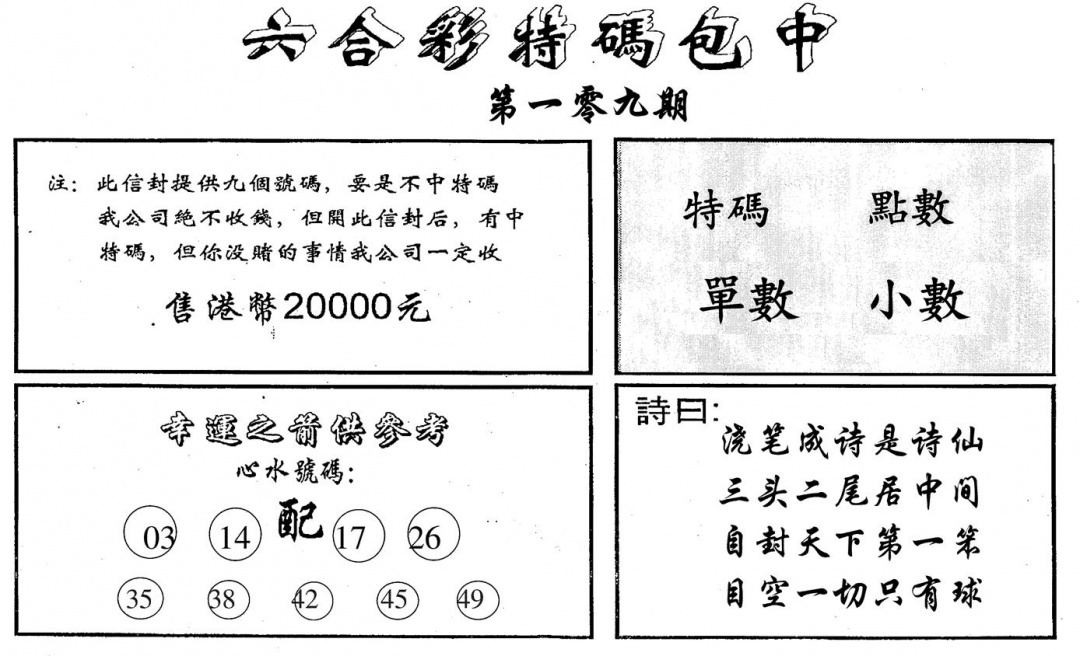 六合彩特碼包中
第一零九期
注：此信封提供九個號碼，要是不中特碼
我公司絕不收錢，但開此信封后，有中
特碼，但你没賭的事情我公司一定收
售港幣20000元
特碼 點數
單數 小數
幸運之箭供參考
心水號碼：
03 14 配 17 26
35 38 42 45 49
詩曰：
浇笔成诗是诗仙
三头二尾居中间
自封天下第一笨
目空一切只有球